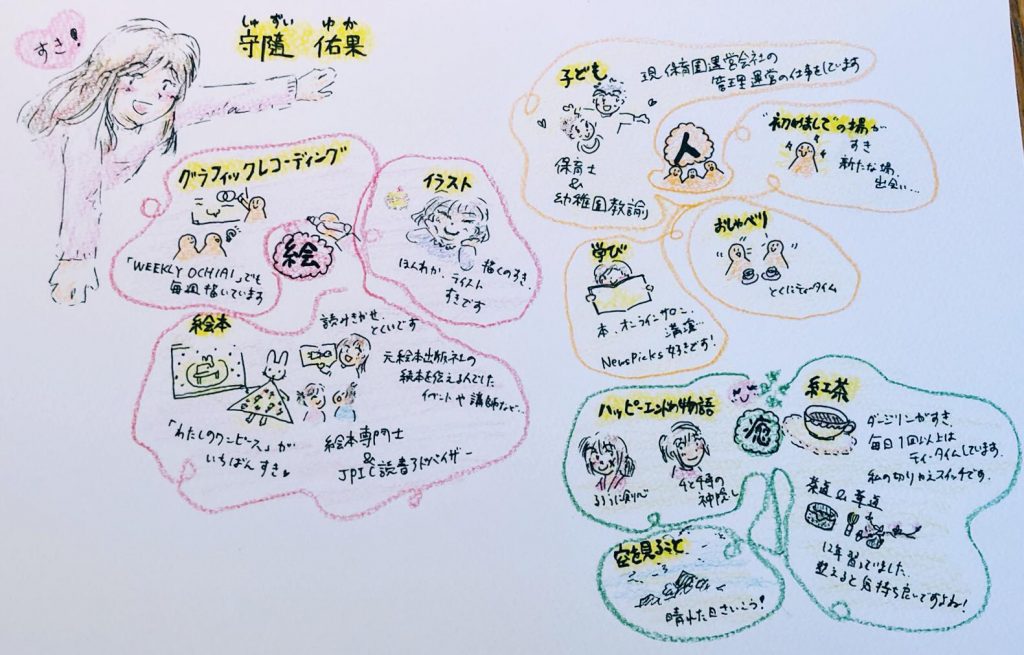 すき!
しゅずい ゆか
守隨 佑果
グラフィックレコーディング
「WEEKLY OCHIAI」でも
毎週描いています
絵
イラスト
描くのすき、
ほんわか、テイスト
すきです
絵本
読みきかせ、
とくいです
元絵本出版社の
絵本を伝える人でした
イベントや講師など…
「わたしのワンピース」が
いちばんすき♥
絵本専門士
&
JPIC読書アドバイザー
人
子ども
現 保育園運営会社の
管理運営の仕事をしています
保育士
&
幼稚園教諭
"初めまして"の場が
すき
新たな場、
出会い…
学び
本、オンラインサロン、
講演…
NewsPicks好きです!
おしゃべり
とくにティータイム
癒
ハッピーエンドの物語
るろうに剣心
千と千尋の
神隠し
紅茶
ダージリンがすき、
毎日1回以上は
ティータイムしています。
私の切りかえスイッチです。
茶道&華道
12年習ってました。
整えると気持ち良いですよね!
空を見ること
晴れた日さいこう!